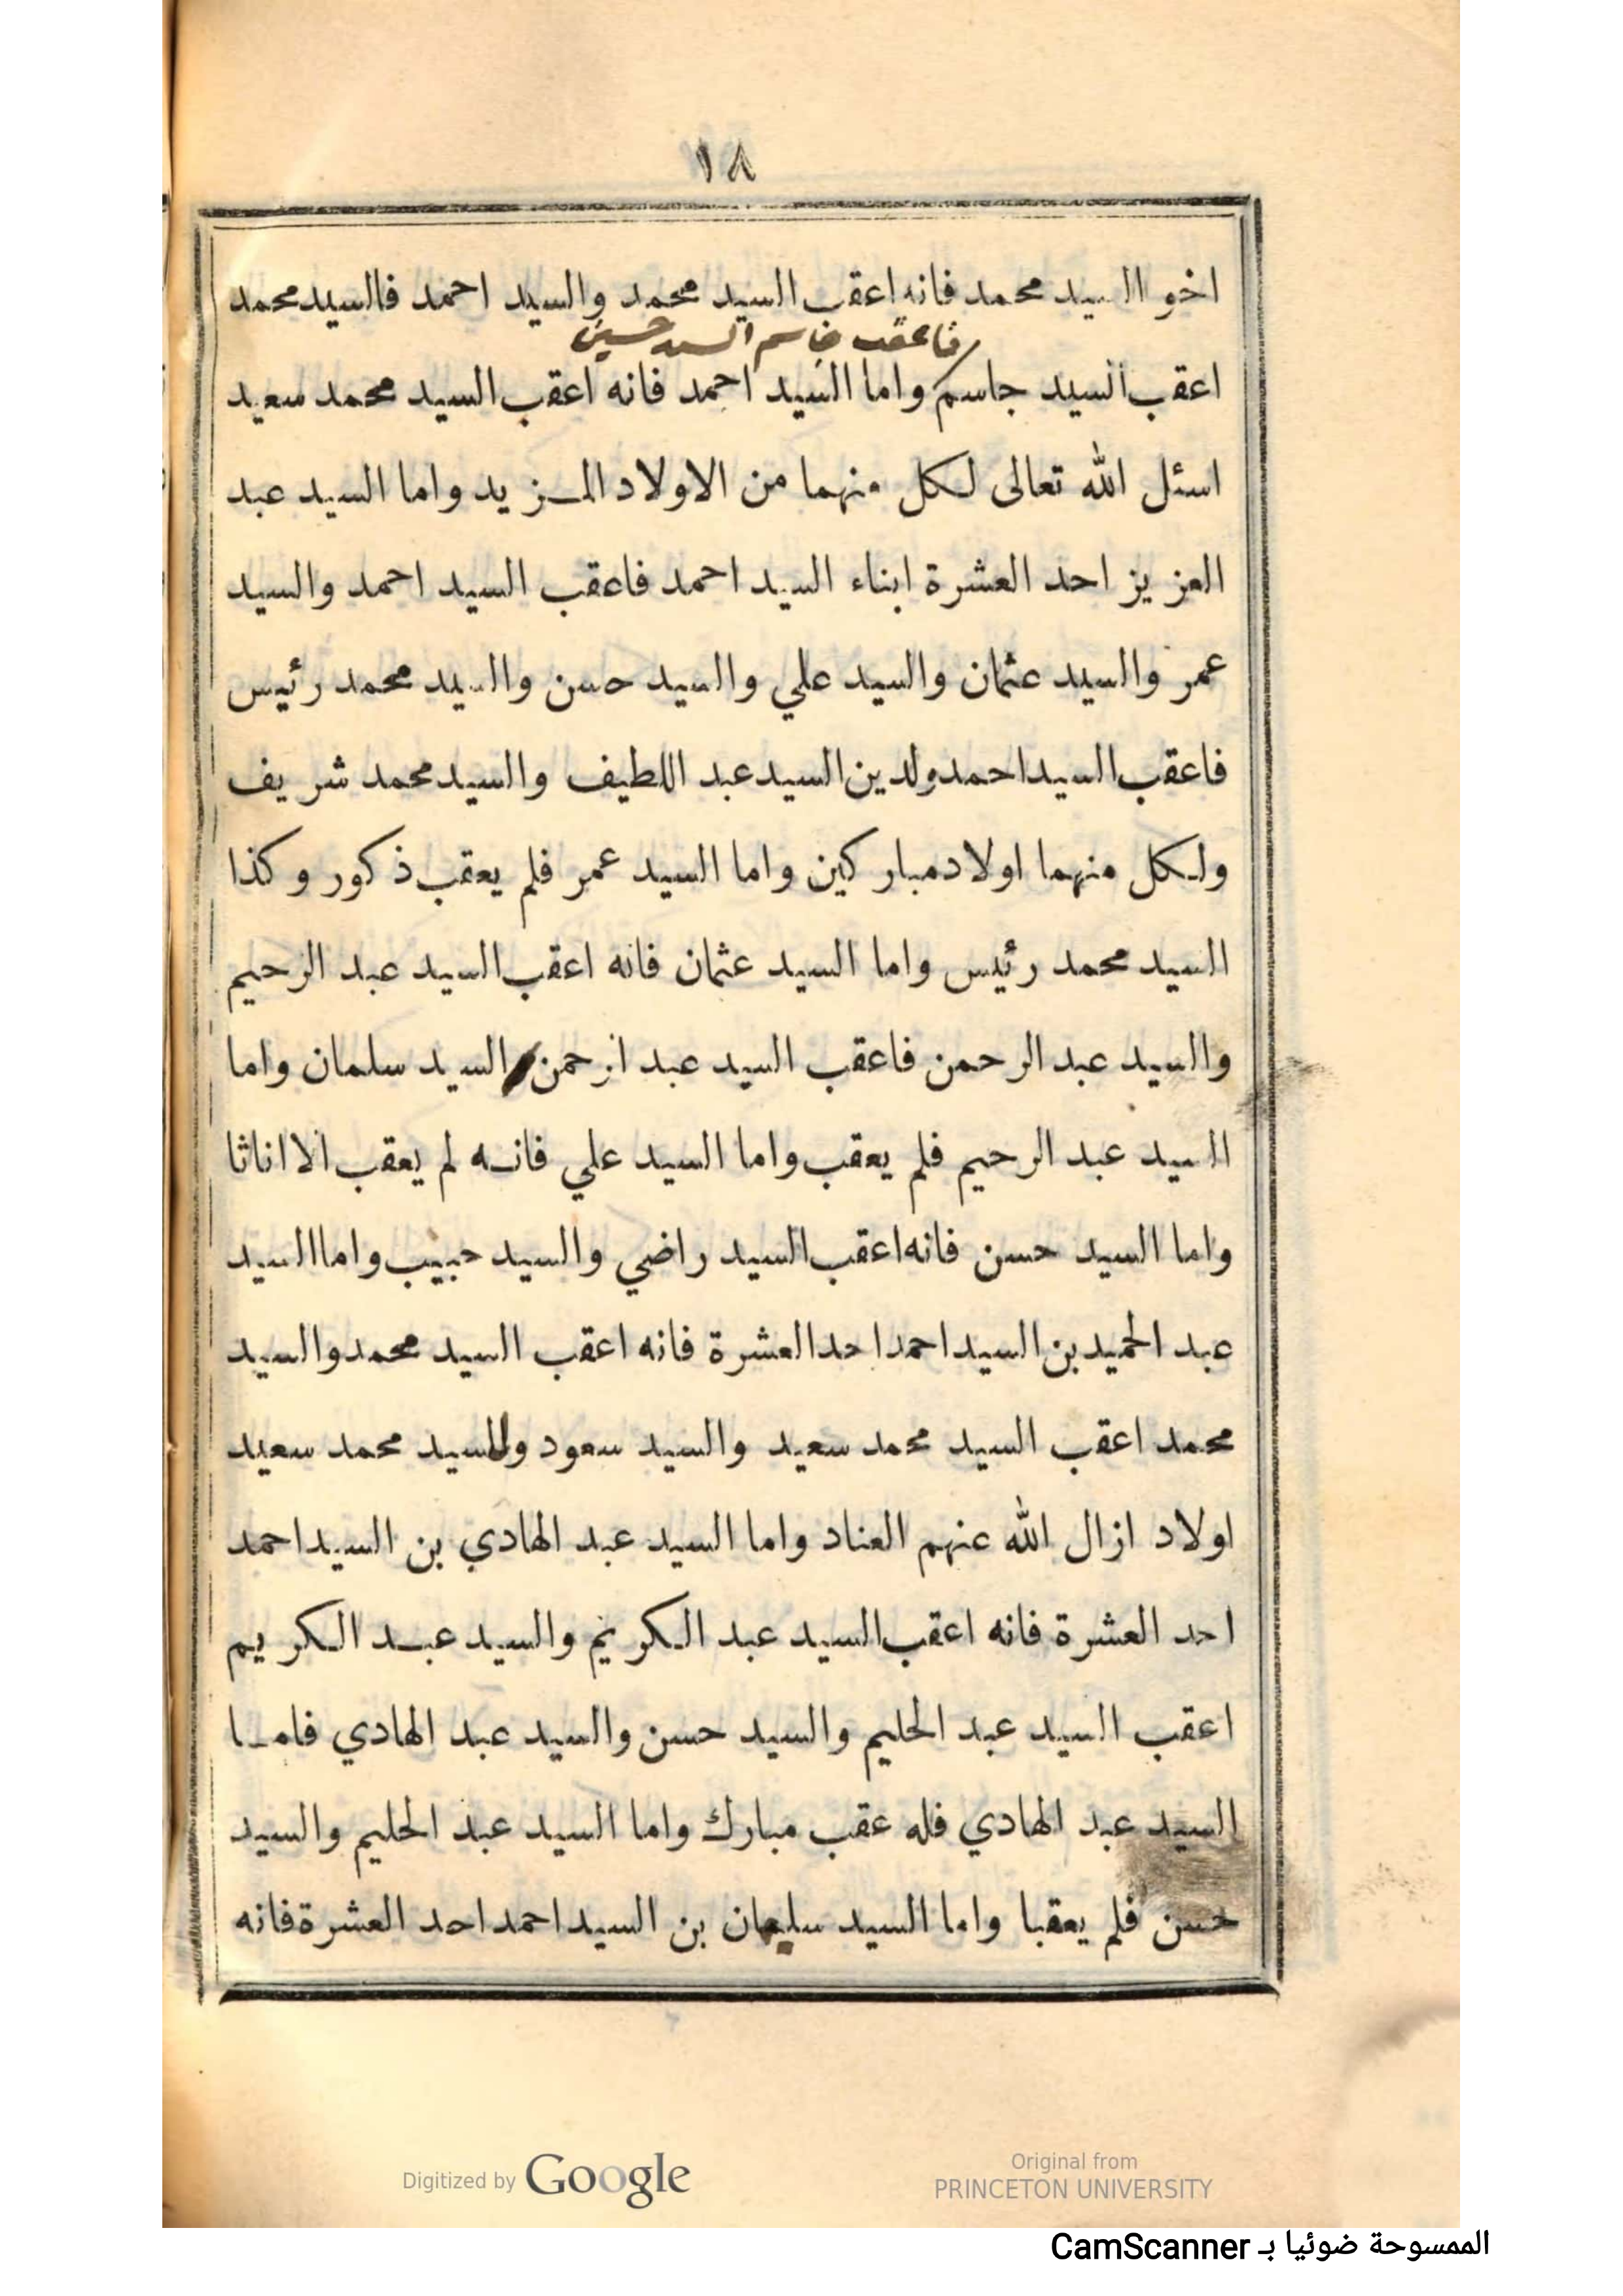 ١٨
اخو السيد محمد فانه اعقب السيد محمد والسيد احمد فالسيد محمد
فاعقب جاسم السيد حسين
اعقب السيد جاسم واما السيد احمد فانه اعقب السيد محمد سعيد
اسئل الله تعالى لكل منهما من الاولاد المزيد واما السيد عبد
العزيز احد العشرة ابناء السيد احمد فاعقب السيد احمد والسيد
عمر والسيد عثمان والسيد علي والسيد حسن والسيد محمد رئيس
فاعقب السيد احمد ولدين السيد عبد اللطيف والسيد محمد شريف
ولكل منهما اولاد مباركين واما السيد عمر فلم يعقب ذكور وكذا
السيد محمد رئيس واما السيد عثمان فانه اعقب السيد عبد الرحيم
والسيد عبد الرحمن فاعقب السيد عبد الرحمن السيد سلمان واما
السيد عبد الرحيم فلم يعقب واما السيد علي فانه لم يعقب الا اناثا
واما السيد حسن فانه اعقب السيد راضي والسيد حبيب واما السيد
عبد الحميد بن السيد احمد احد العشرة فانه اعقب السيد محمد والسيد
محمد اعقب السيد محمد سعيد والسيد سعود وللسيد محمد سعيد
اولاد ازال الله عنهم العناد واما السيد عبد الهادي بن السيد احمد
احد العشرة فانه اعقب السيد عبد الكريم والسيد عبد الكريم
اعقب السيد عبد الحليم والسيد حسن والسيد عبد الهادي فاما
السيد عبد الهادي فله عقب مبارك واما السيد عبد الحليم والسيد
حسن فلم يعقبا واما السيد سليمان بن السيد احمد احد العشرة فانه
Digitized by Google
Original from
PRINCETON UNIVERSITY
الممسوحة ضوئيا بـ CamScanner